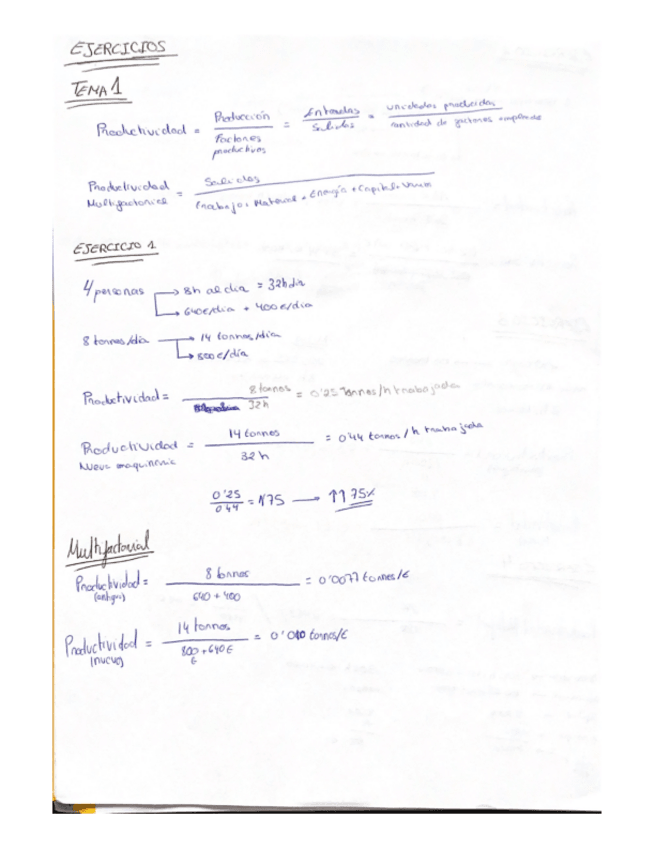 EJERCICIOS
TEMA 1
Productividad = Producción / Factores productivos = Entradas / Salidas = unidades producidas / cantidad de factores empleados
Productividad Multifactorial = Salidas / Trabajo + Material + Energía + Capital +
EJERCICIO 1
4 personas → 8h al día = 32h día
→ 640€/dia + 400€/dia
8 tonnes/día → 14 tonnes/día
→ 800€/día
Productividad = 8 tonnes / 32h = 0'25 Tonnes/h trabajada
Productividad Nueva maquinaria = 14 tonnes / 32h = 0'44 tonnes/h trabajada
0'25 / 0'44 = 1'75 → ↑↑ 75%
Multifactorial
Productividad (antiguo) = 8 tonnes / 640 + 400 = 0'0077 tonnes/€
Productividad (nuevo) = 14 tonnes / 800 € + 640€ = 0'010 tonnes/€